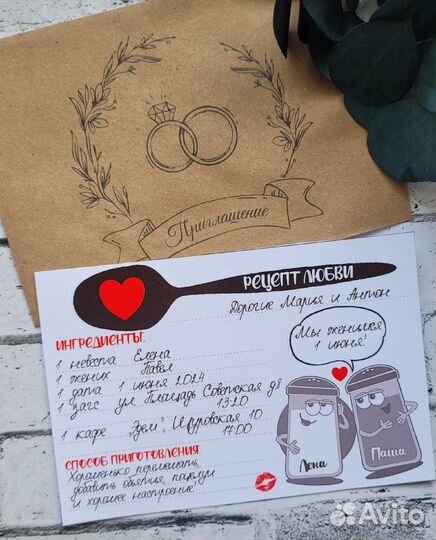 Приглашение
РЕЦЕПТ ЛЮБВИ
Дорогие Мария и Антон
ИНГРЕДИЕНТЫ:
1 невеста Елена
1 жених Павел
1 дата 1 июня 2024
1 загс ул. Площадь Советская д8
1320
1 кафе "Эдем", 10
17:00
Мы женимся
1 июня!
СПОСОБ ПРИГОТОВЛЕНИЯ:
Хорошенько перемешать,
добавить объятия, поцелуи
и хорошее настроение!
Лена
Паша
Avito